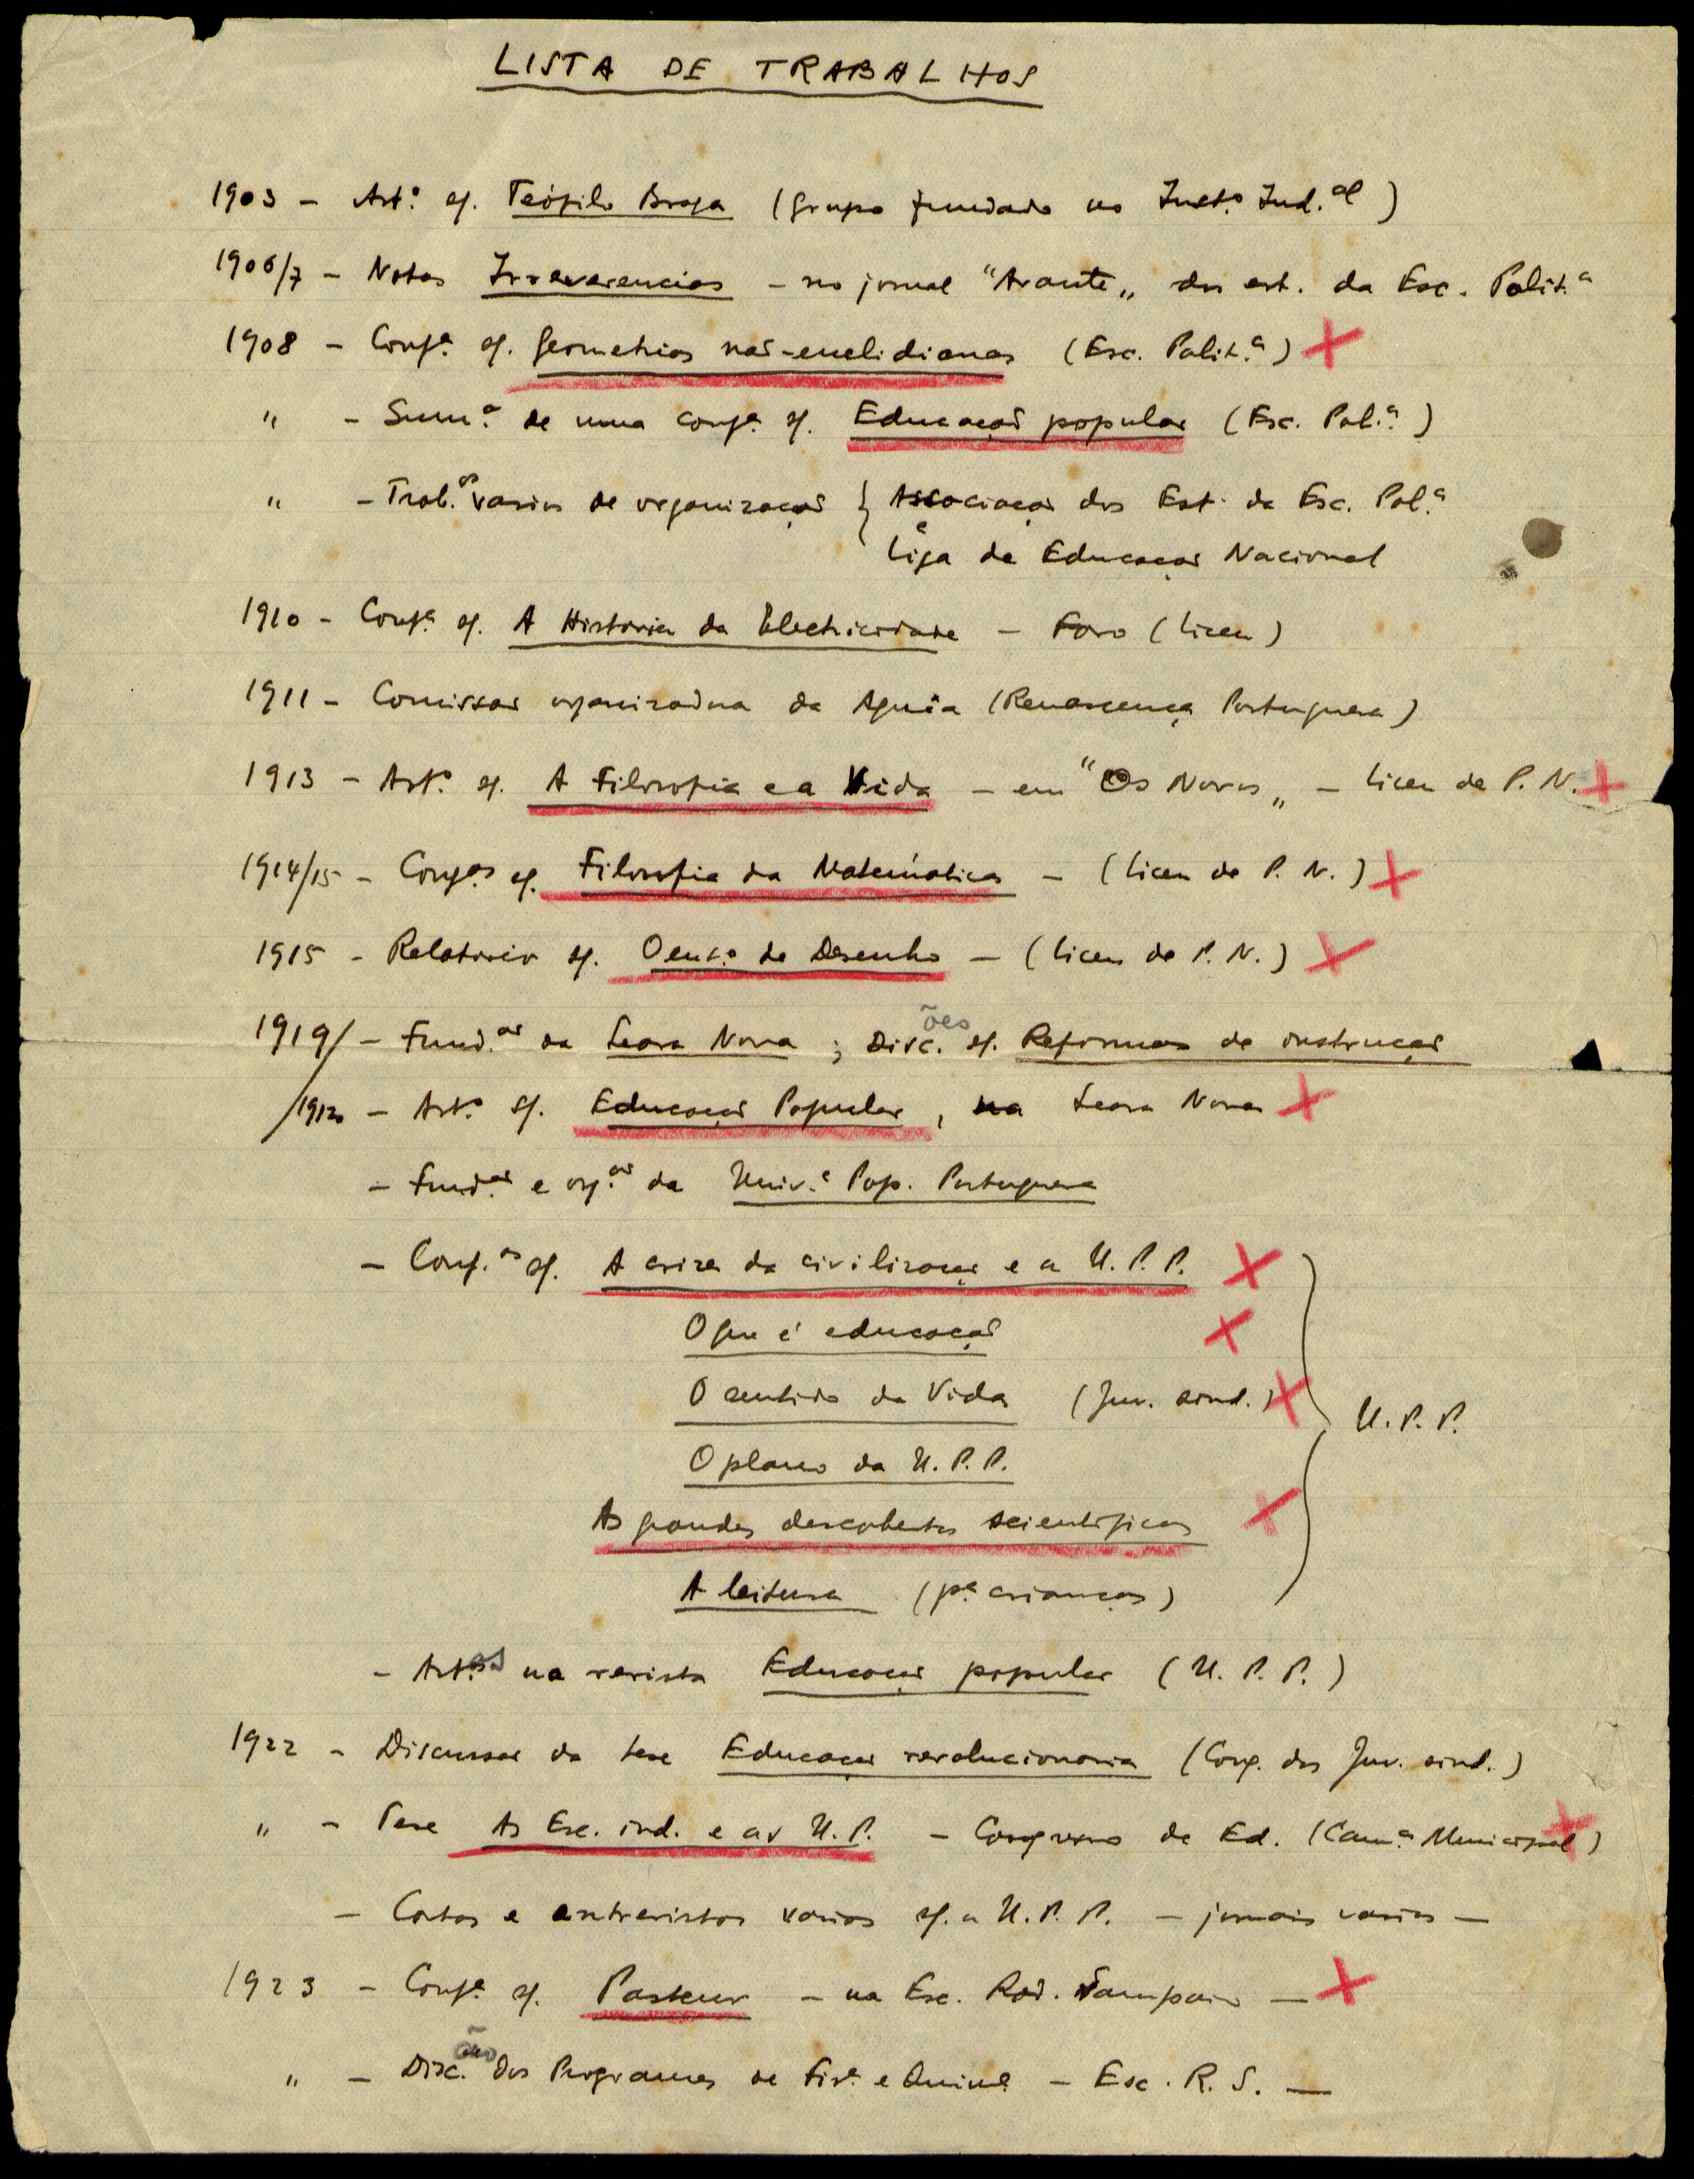 LISTA DE TRABALHOS
1903 - Art.º sf. Teófilo Braga (grupo fundado no Inst.º Ind.al)
1906/7 - Notas Irreverencias - no jornal "Avante„ dos est. da Esc. Polit.ª
1908 - Conf.ª sf. Geometrias não-euclidianas (Esc. Polit.ª)
" - Sum.º de uma conf.ª sf. Educação popular (Esc. Pol.ª)
" - Trab.os varios de organização { Associação dos Est. da Esc. Pol.ª
Liga de Educação Nacional
1910 - Conf.ª sf. A Historia da Electricidade - Faro (Liceu)
1911 - Comissão organizadora da Aguia (Renascença Portuguesa)
1913 - Art.º sf. A Filosofia e a Vida - em "Os Novos„ - Liceu de P. N.
1914/15 - Conf.as sf. Filosofia da Matemática - (Liceu de P. N.)
1915 - Relatorio sf. O ens.º do Desenho - (Liceu de P. N.)
1919/ - Fund.ão da Seara Nova ; Disc.ões sf. Reformas de instrução
/1920 - Art.º sf. Educação Popular, na Seara Nova
- Fund.ão e org.ão da Univ.e Pop. Portuguesa
- Conf.as sf. A crise da civilização e a U. P. P.
O que é educação
O sentido da Vida (Juv. sind.) U. P. P.
O plano da U. P. P.
As grandes descobertas scientíficas
A leitura (p.ª crianças)
- Art.os na revista Educação popular (U. P. P.)
1922 - Discussão da tese Educação revolucionaria (Cong. das Juv. sind.)
" - Tese As Esc. ind. e as U. P. - Congresso de Ed. (Cam.ª Municipal)
- Cartas e entrevistas varias sf. a U. P. P. - jornais varios -
1923 - Conf.ª sf. Pasteur - na Esc. Rod. Sampaio -
" - Disc.ão dos Programas de Fis.ª e Quim.ª - Esc. R. S. -